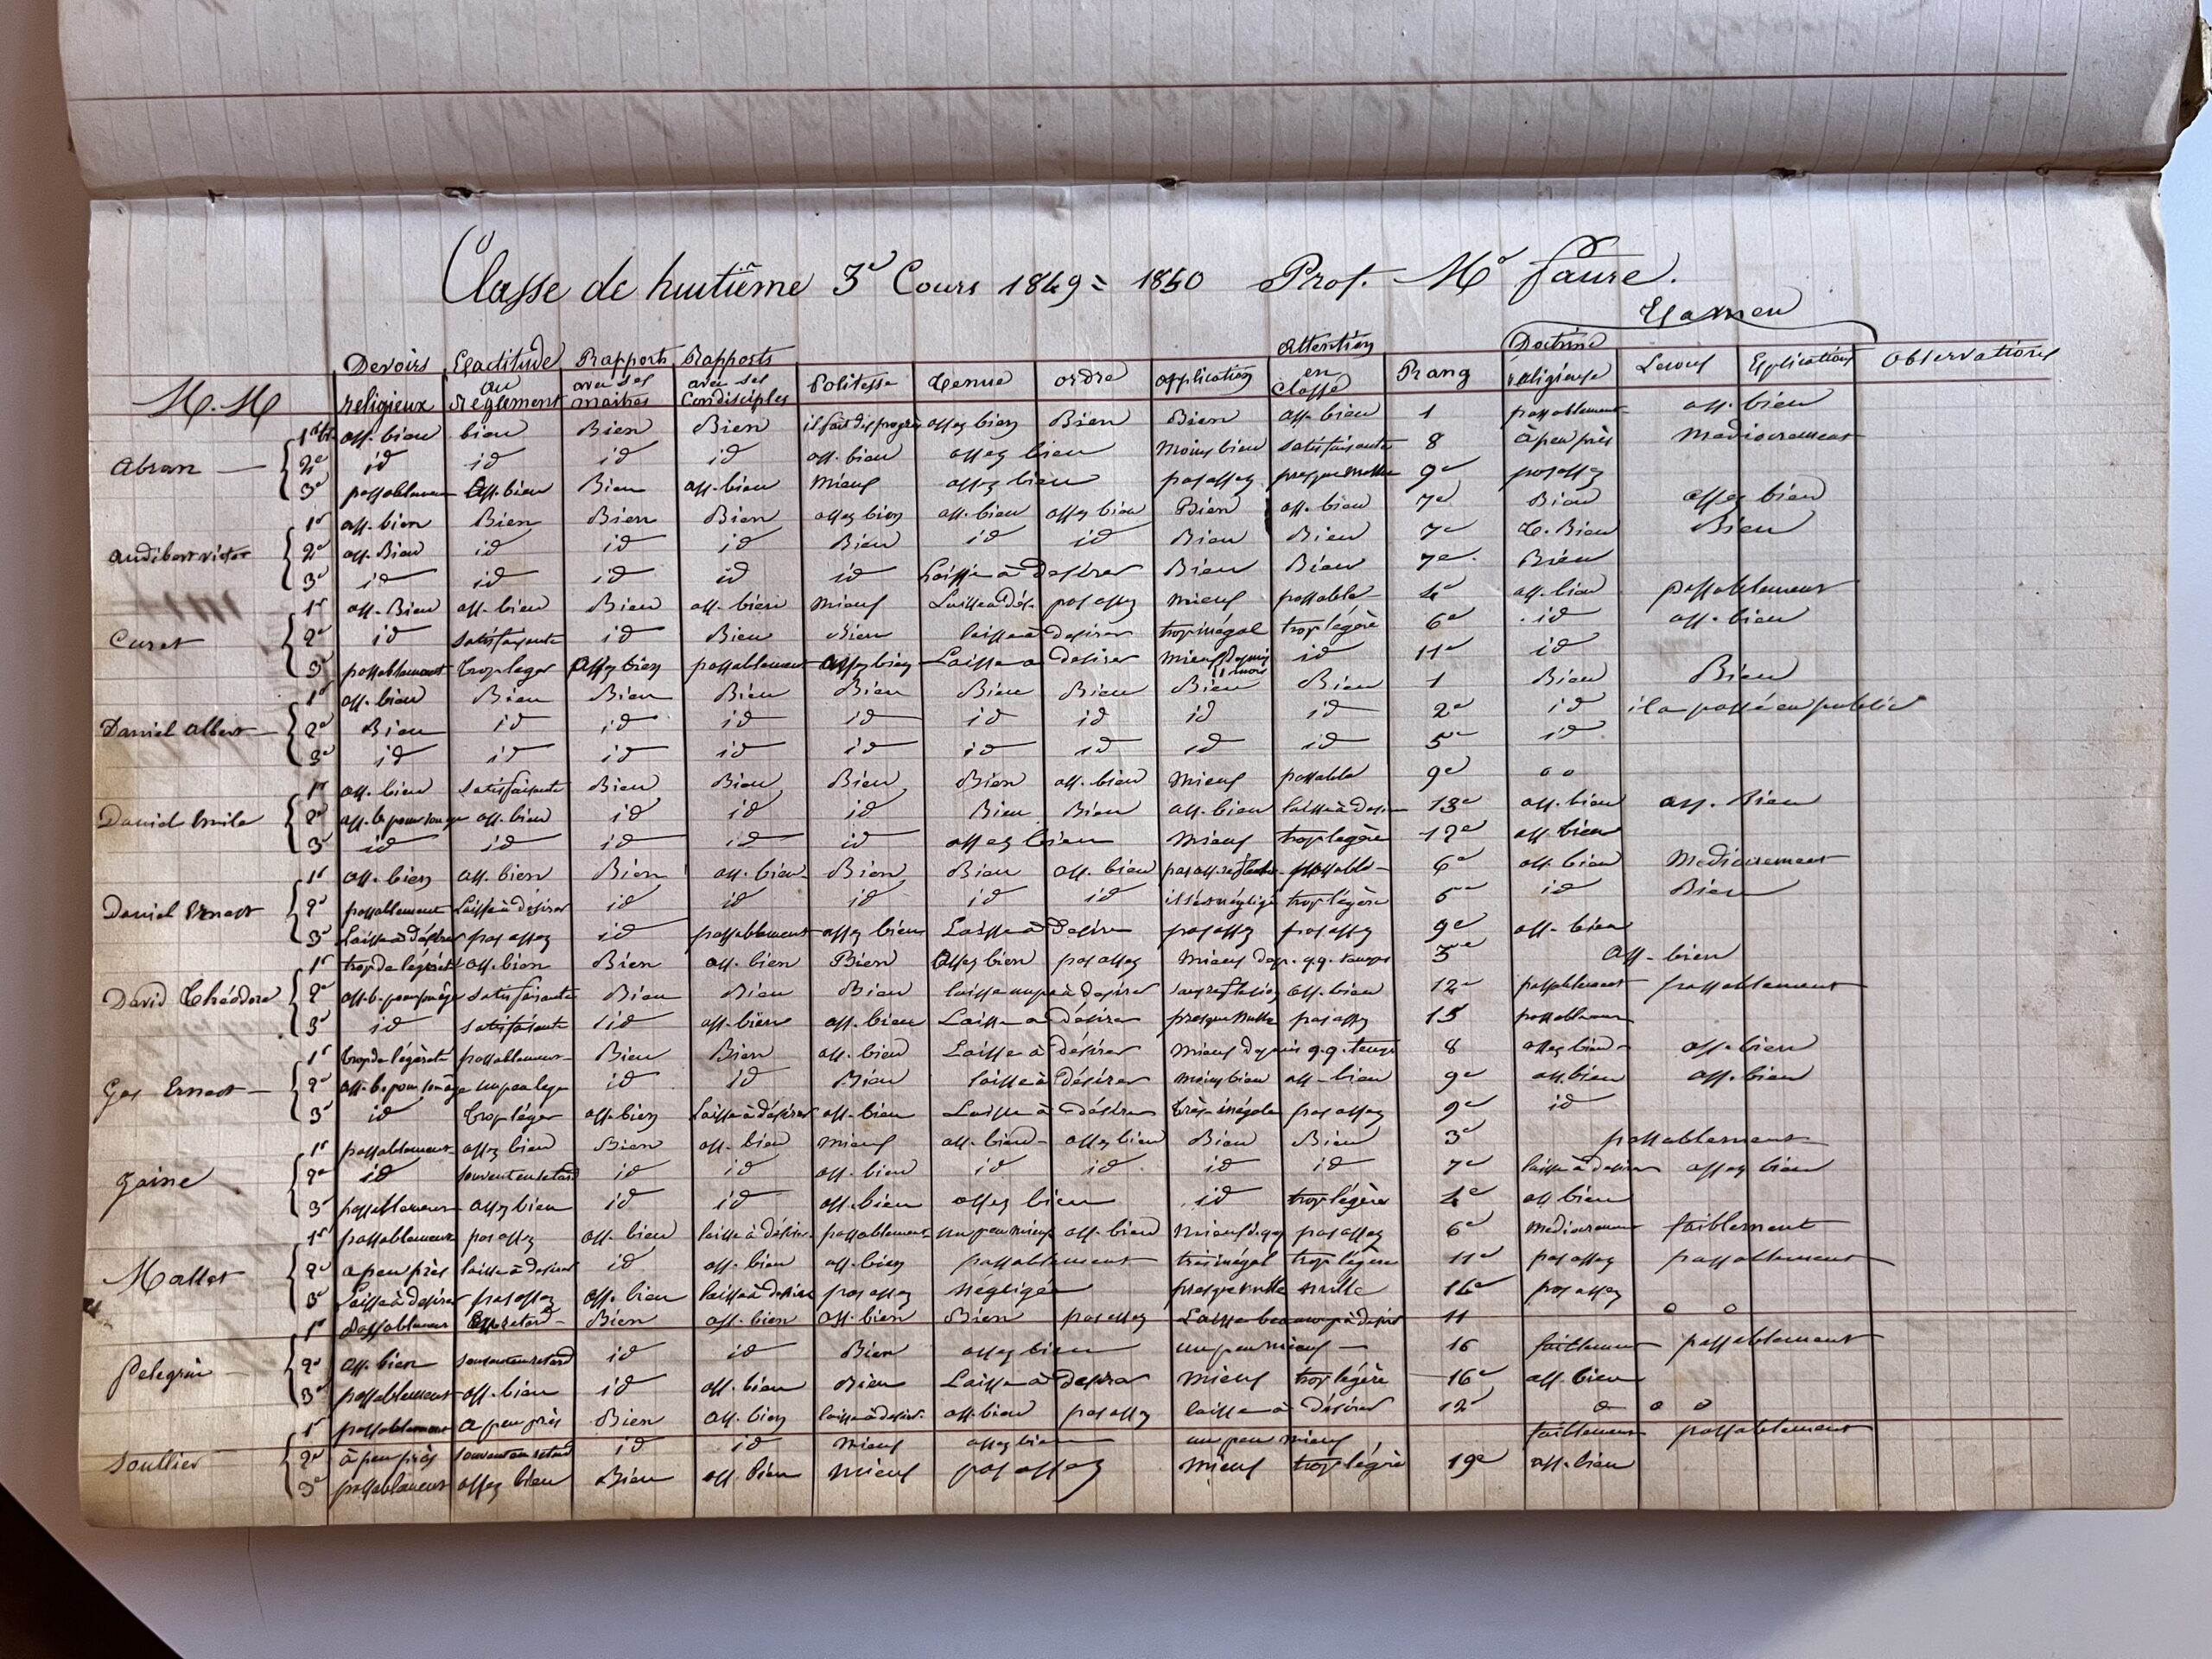 Classe de huitième 3e Cours 1849 = 1850 Prof. Mr Faure.
Examen
M.M Devoirs religieux Exactitude au règlement Rapports avec ses maitres Rapports avec ses Condisciples Politesse Tenue ordre application Attention en Classe Rang Doctrine religieuse Lecons Explications Observations
1er tri ass. bien bien Bien Bien il fait des progrès assez bien Bien Bien ass. bien 1 passablement ass. bien
Abran 2e id id id id ass. bien assez bien Moins bien satisfaisante 8 à peu près Mediocrement
3e passablement Ass. bien Bien ass. bien Mieux assez bien pas assez presque nulle 9e pas assez
1er ass. bien Bien Bien Bien assez bien ass. bien assez bien Bien ass. bien 7e Bien assez bien
Audibert victor 2e ass. Bien id id id Bien id id Bien Bien 7e T. Bien Bien
3e id id id id id Laisse à desirer Bien Bien 7e Bien
1er ass. Bien ass. bien Bien ass. bien Mieux Laisse à dés. pas assez Mieux passable 4e ass. bien passablement
Curet 2e id satisfaisante id Bien Bien laisse à desirer trop inégal trop légère 6e id ass. bien
3e passablement trop leger Assez bien passablement Assez bien Laisse a desirer Mieux depuis id 11e id
1er ass. bien Bien Bien Bien Bien Bien Bien Bien Bien 1 Bien Bien
Daniel Albert 2e Bien id id id id id id id id 2e id il a passé en public
3e id id id id id id id id id 5e id
1er ass. bien satisfaisante Bien Bien Bien Bien ass. bien Mieux passable 9e o o
Daniel Emile 2e ass. b. pour son age ass. bien id id id Bien Bien ass. bien laisse à desirer 13e ass. bien ass. Bien
3e id id id id id assez bien Mieux trop légère 17e ass. bien
1er ass. bien ass. bien Bien ass. bien Bien Bien ass. bien passable 6e ass. bien Mediocrement
Daniel Ernest 2e passablement Laisse à désirer id id id id id il s'est négligé trop légère id Bien
3e Laisse à désirer pas assez id passablement assez bien Laisse à Desirer pas assez pas assez 9e ass. bien
1er trop de légèreté ass. bien Bien ass. bien Bien Assez bien pas assez Mieux dep. q.q. temps 3e Ass. bien
David Théodore 2e ass. b. pour son âge satisfaisante Bien Bien Bien laisse un peu à desirer sans reflexion ass. bien 12e passablement passablement
3e id satisfaisante id ass. bien ass. bien Laisse a désirer presque nulle pas assez 15 passablement
1er trop de légèreté passablement Bien Bien ass. bien Laisse à désirer Mieux depuis q.q. temps 8 assez bien ass. bien
Gas Ernest 2e ass. b. pour son âge un peu leger id id Bien laisse à Désirer Moins bien ass. bien 9e ass. bien ass. bien
3e id trop léger ass. bien Laisse à désirer ass. bien Laisse à Désirer très-inégale pas assez 9e id
1er passablement assez bien Bien ass. bien Mieux ass. bien assez bien Bien Bien 3e passablement
2e id souvent en retard id id ass. bien id id id id 7e laisse à desirer assez bien
3e passablement assez bien id id ass. bien assez bien id trop légère 4e ass. bien
1er passablement pas assez ass. bien laisse à désirer passablement un peu mieux ass. bien pas assez 6e mediocrement faiblement
Mallet 2e a peu près laisse à desirer id ass. bien ass. bien passablement très inégal trop légère 11e pas assez passablement
3e Laisse à desirer pas assez ass. bien laisse à desirer pas assez Négligée presque nulle nulle pas assez
1er Passablement Bien ass. bien ass. bien Bien pas assez Laisse beaucoup à desirer 11 o o
Pelegrin 2e ass. bien souvent en retard id id Bien assez bien un peu mieux 16 faiblement passablement
3e passablement ass. bien id ass. bien Bien Laisse à Desirer Mieux trop légère 16e ass. bien
1er passablement a peu près Bien ass. bien laisse à desirer ass. bien pas assez laisse à Désirer 12e o o o
Soullier 2e à peu près souvent en retard id id Mieux assez bien un peu mieux faiblement passablement
3e passablement assez bien Bien ass. bien Mieux pas assez Mieux trop légère 19e ass. bien